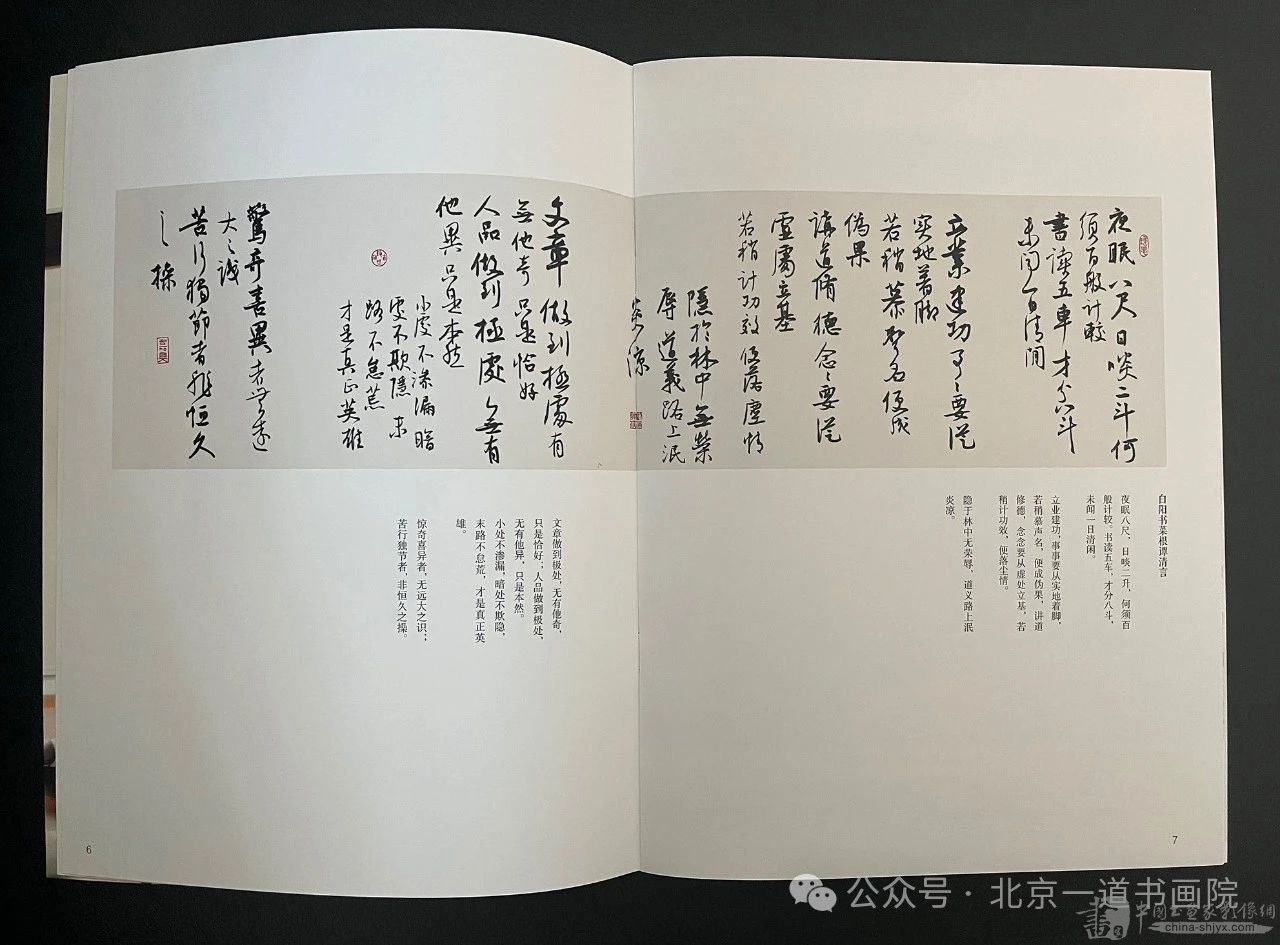 夜眠八尺日啖二斗何
須百般計較
書讀五車才分八斗
未聞一日清閒
立業建功事〻要從
実地著脚
若稍慕聲名便成
偽果
講道脩德念〻要從
虛處立基
若稍計功效便落塵情
隱於林中無榮
辱道義路上泯
炎涼
文章做到極處有
無他奇只是恰好
人品做到極處無有
他異只是本然
小處不滲漏暗
處不欺隱末
路不怠荒
才是真正英雄
驚奇喜異者無遠
大之識
苦行獨節者非恒久
之操
白阳书菜根谭清言
夜眠八尺，日啖二升，何须百
般计较。书读五车，才分八斗，
未闻一日清闲。
立业建功，事事要从实地着脚，
若稍慕声名，便成伪果，讲道
修德，念念要从虚处立基，若
稍计功效，便落尘情。
隐于林中无荣辱，道义路上泯
炎凉。
文章做到极处，无有他奇，
只是恰好；人品做到极处，
无有他异，只是本然。
小处不渗漏，暗处不欺隐，
末路不怠荒，才是真正英
雄。
惊奇喜异者，无远大之识；
苦行独节者，非恒久之操。
6
7
公众号·北京一道书画院
中国书画家影像網
china-shjyx.com